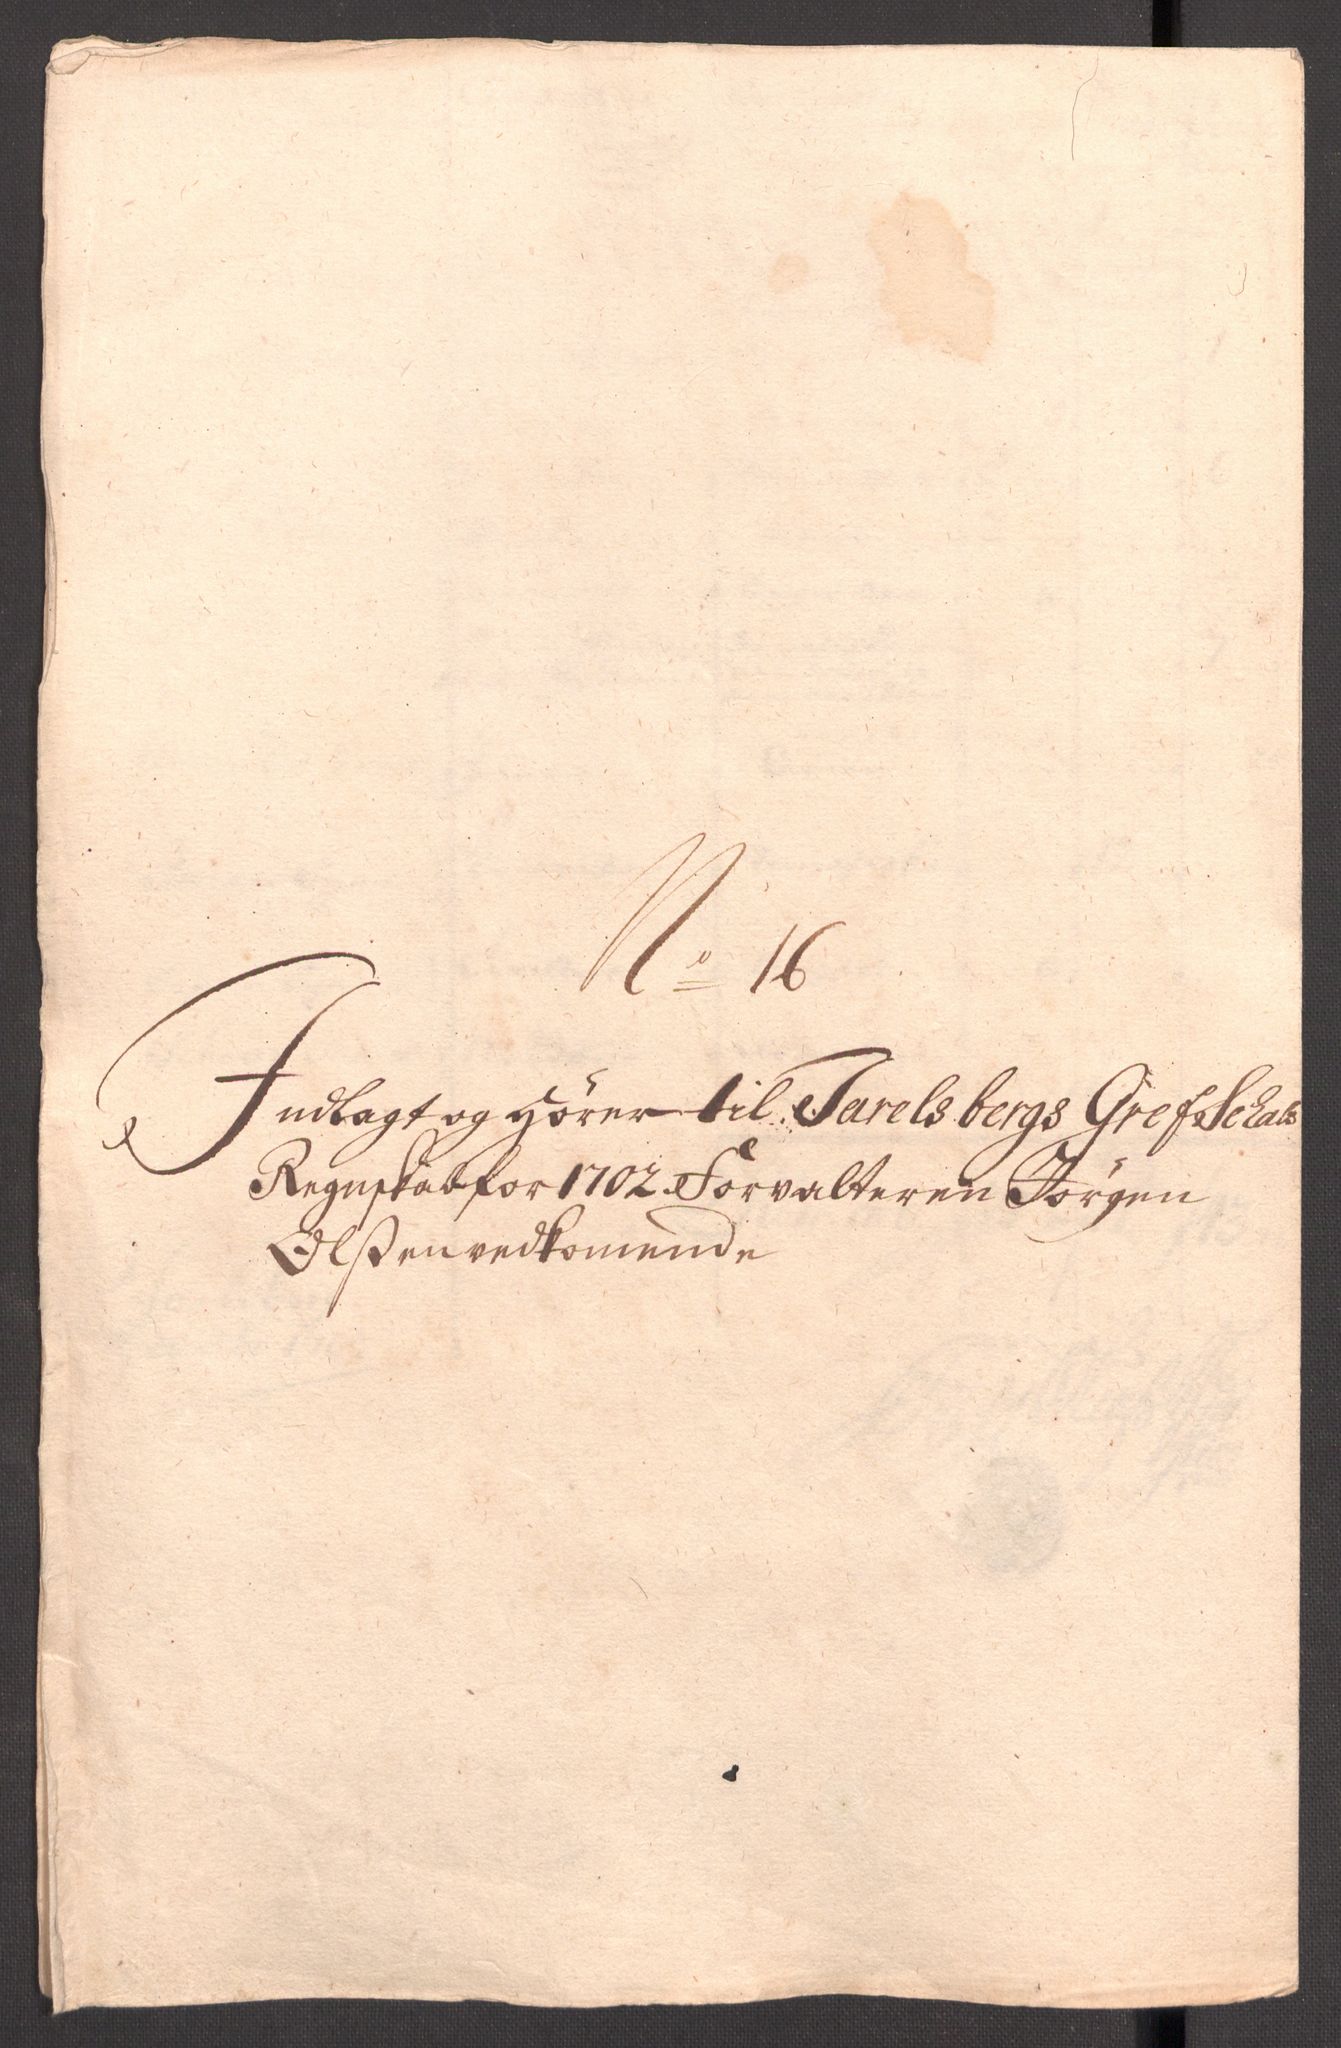 No 16
Indlagt og Hörer til Jarelsbergs Grefschabs
Regnskab for 1702 Forvalteren Jörgen
Olßen vedkomende